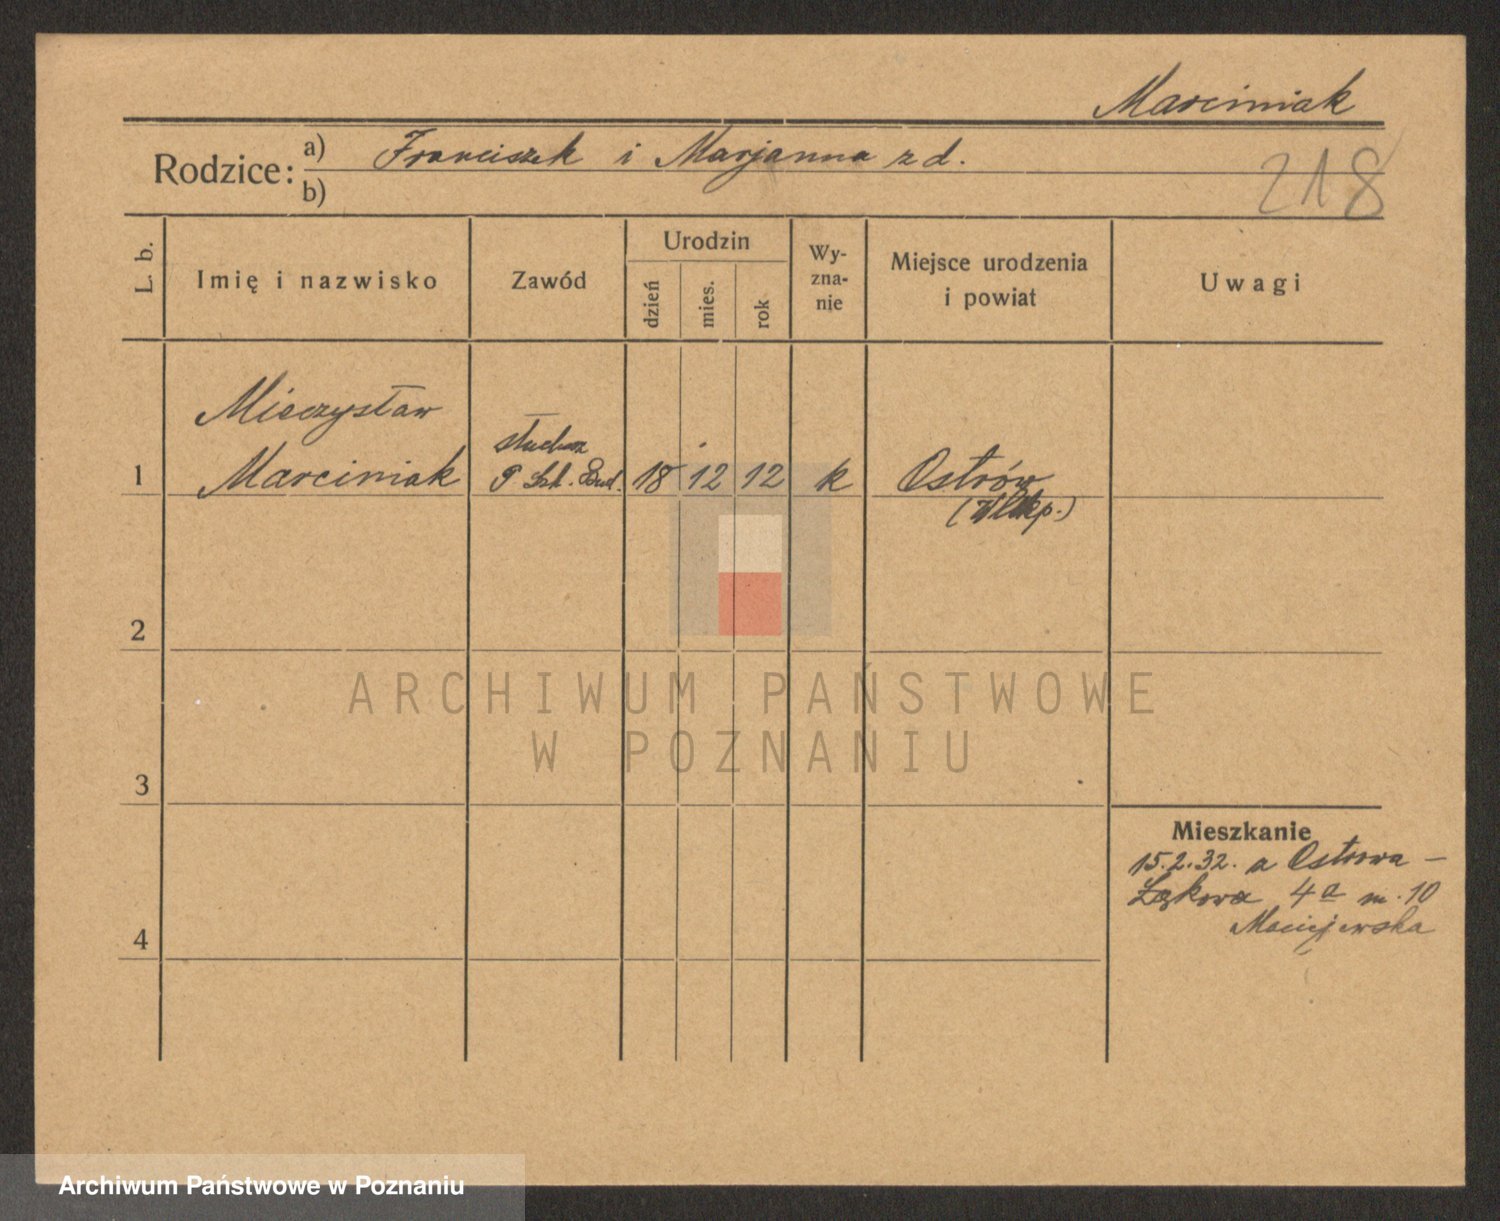 Marciniak
Rodzice: a) Franciszek i Marjanna z d.
b)
218
L. b.
Imię i nazwisko
Zawód
Urodzin
dzień
mies.
rok
Wy-
zna-
nie
Miejsce urodzenia
i powiat
Uwagi
Mieczysław
słuchacz
1 Marciniak P Szk. Bud. 18 12 12 k Ostrów
(Wlkp.)
2
ARCHIWUM PAŃSTWOWE
W POZNANIU
3
Mieszkanie
15.2.32. a Ostrowa –
Łąkowa 4a m. 10
Maciejewska
4
Archiwum Państwowe w Poznaniu